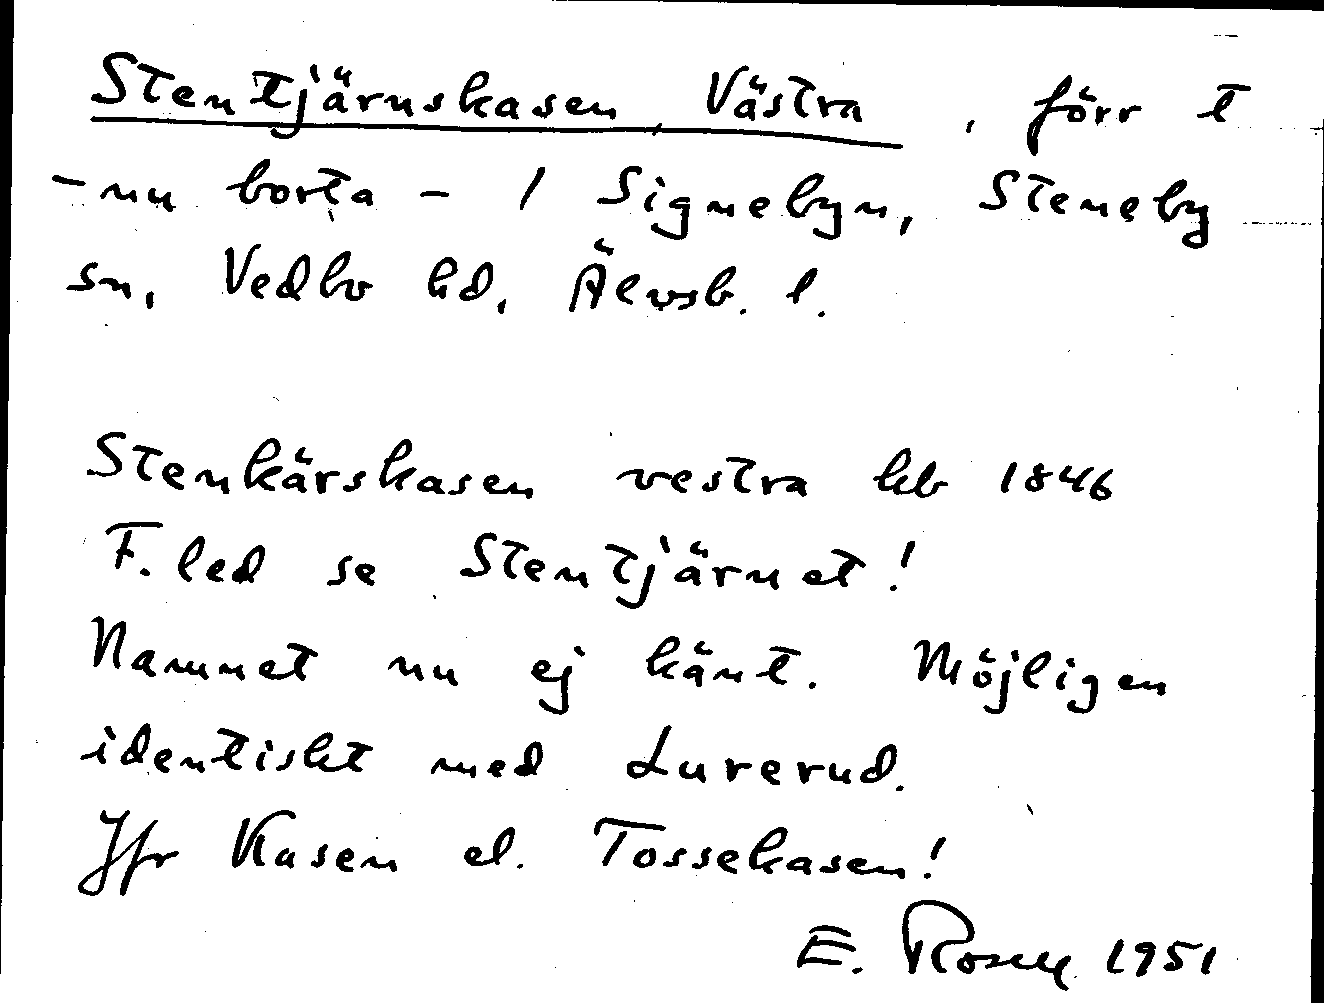 Stentjärnskasen, Västra, förr t
- nu borta - / Signebyn, Steneby
sn, Vedbo hd, Älvsb. l.
Stenkärskasen vestra kb 1846
F. led se Stentjärnet!
Namnet nu ej känt. Möjligen
identiskt med Lurerud.
Jfr Kasen el. Tossekasen!
E. 1951